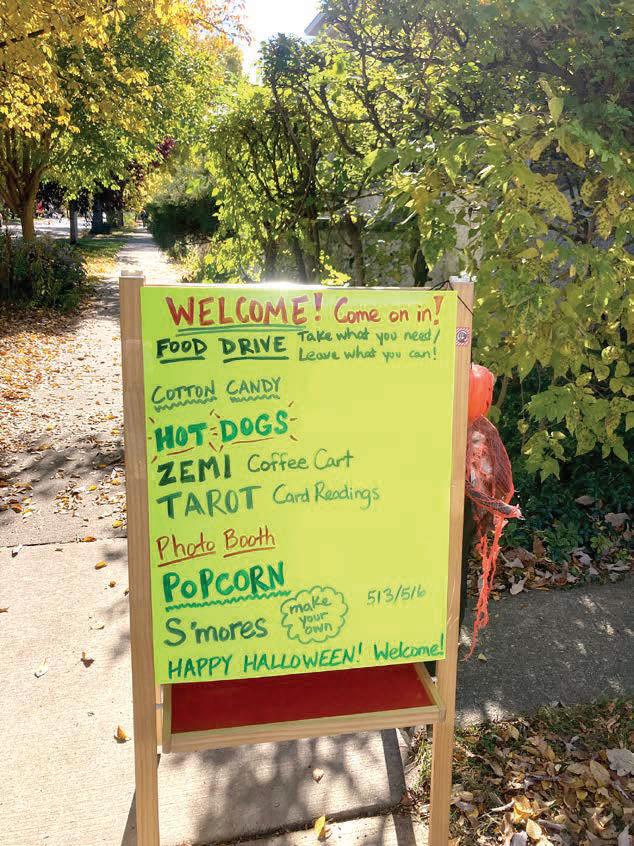 WELCOME! Come on in!
FOOD DRIVE Take what you need/
Leave what you can!
COTTON CANDY
HOT DOGS
ZEMI Coffee Cart
TAROT Card Readings
Photo Booth
POPCORN
S'mores make your own
513/516
HAPPY HALLOWEEN! Welcome!